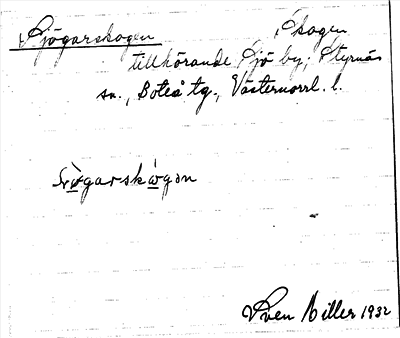 Sjögarskogen Skogen
tillhörande Sjö by, Styrnäs
sn., Boteå tg., Västernorrl. l.
Sven Miller 1932